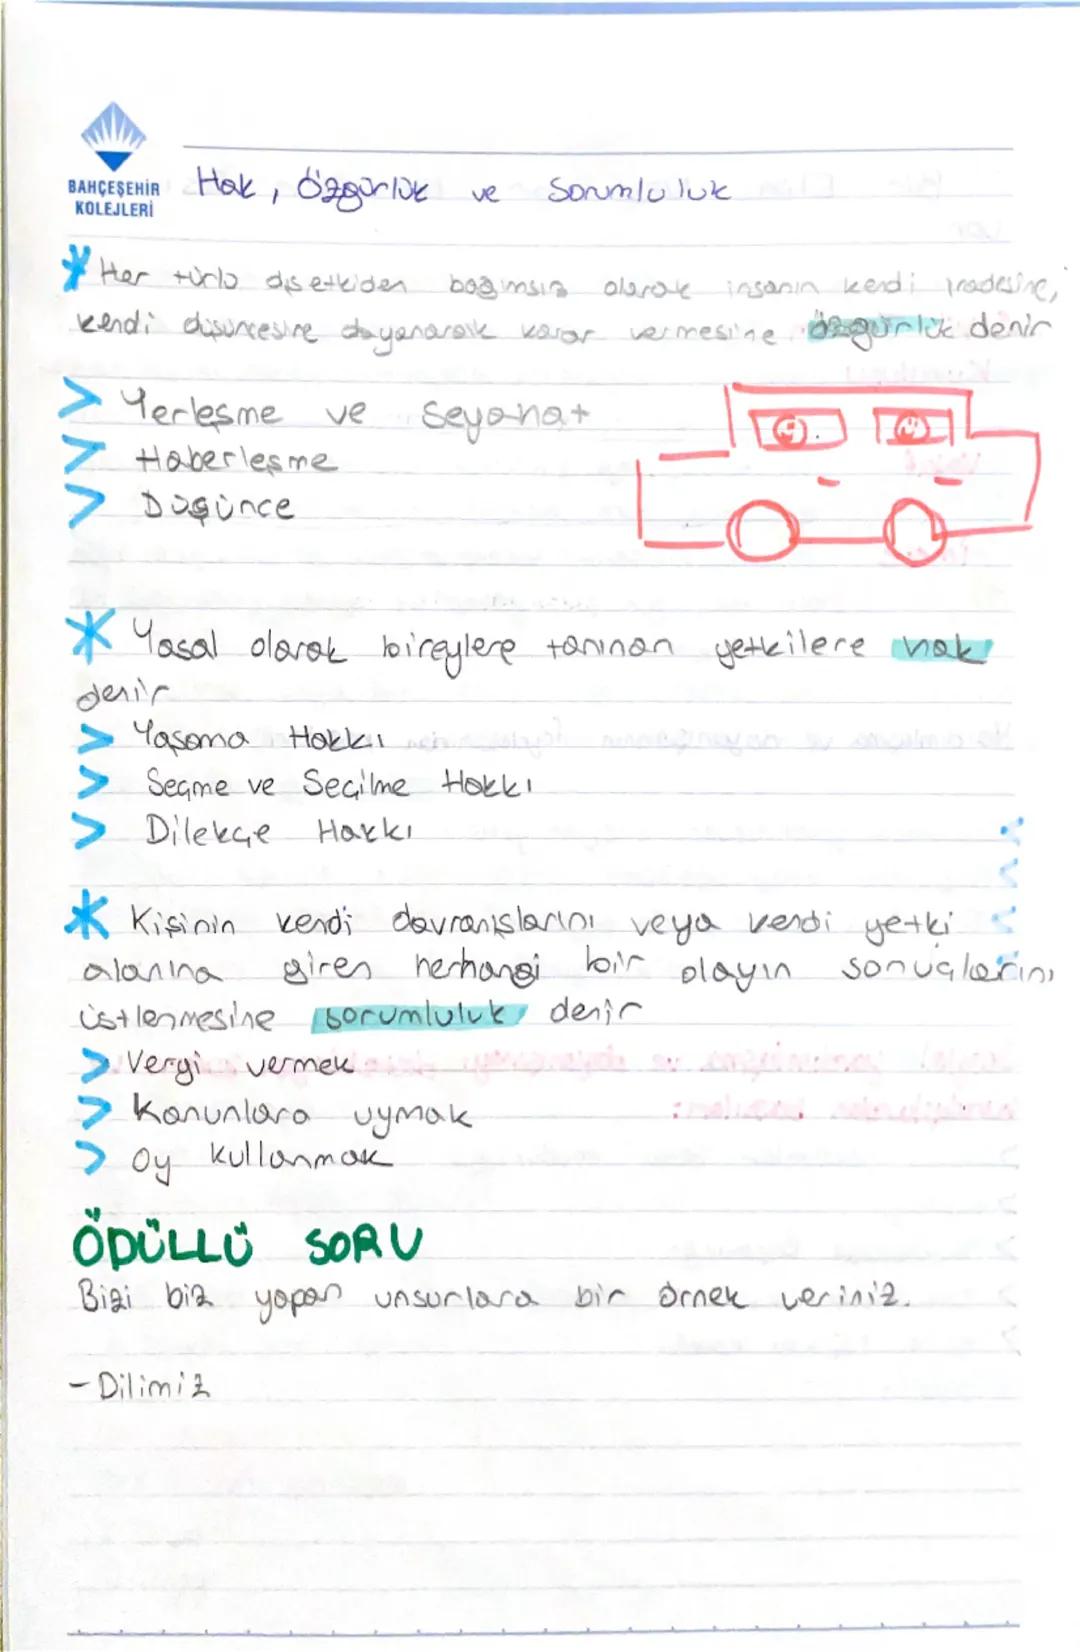 BAHÇEŞEHİR
KOLEJLERİ
Hak, Özgürlük ve Sorumluluk
* Her türlü dış etkiden bağımsız olarak insanın kendi iradesine,
kendi düşüncesine dayanarak karar vermesine özgürlük denir
> Yerleşme ve Seyahat
> Haberleşme
> Düşünce
* Yasal olarak bireylere tanınan yetkilere hak
denir
> Yaşama Hakkı
> Seçme ve Seçilme Hakkı
> Dilekçe Hakkı
* Kişinin kendi davranışlarını veya kendi yetki
alanına giren herhangi bir olayın sonuçlarını
üstlenmesine sorumluluk denir
> Vergi vermek
> Kanunlara uymak
> Oy kullanmak
ÖDÜLLÜ SORU
Bizi biz yapan unsurlara bir örnek veriniz.
- Dilimiz